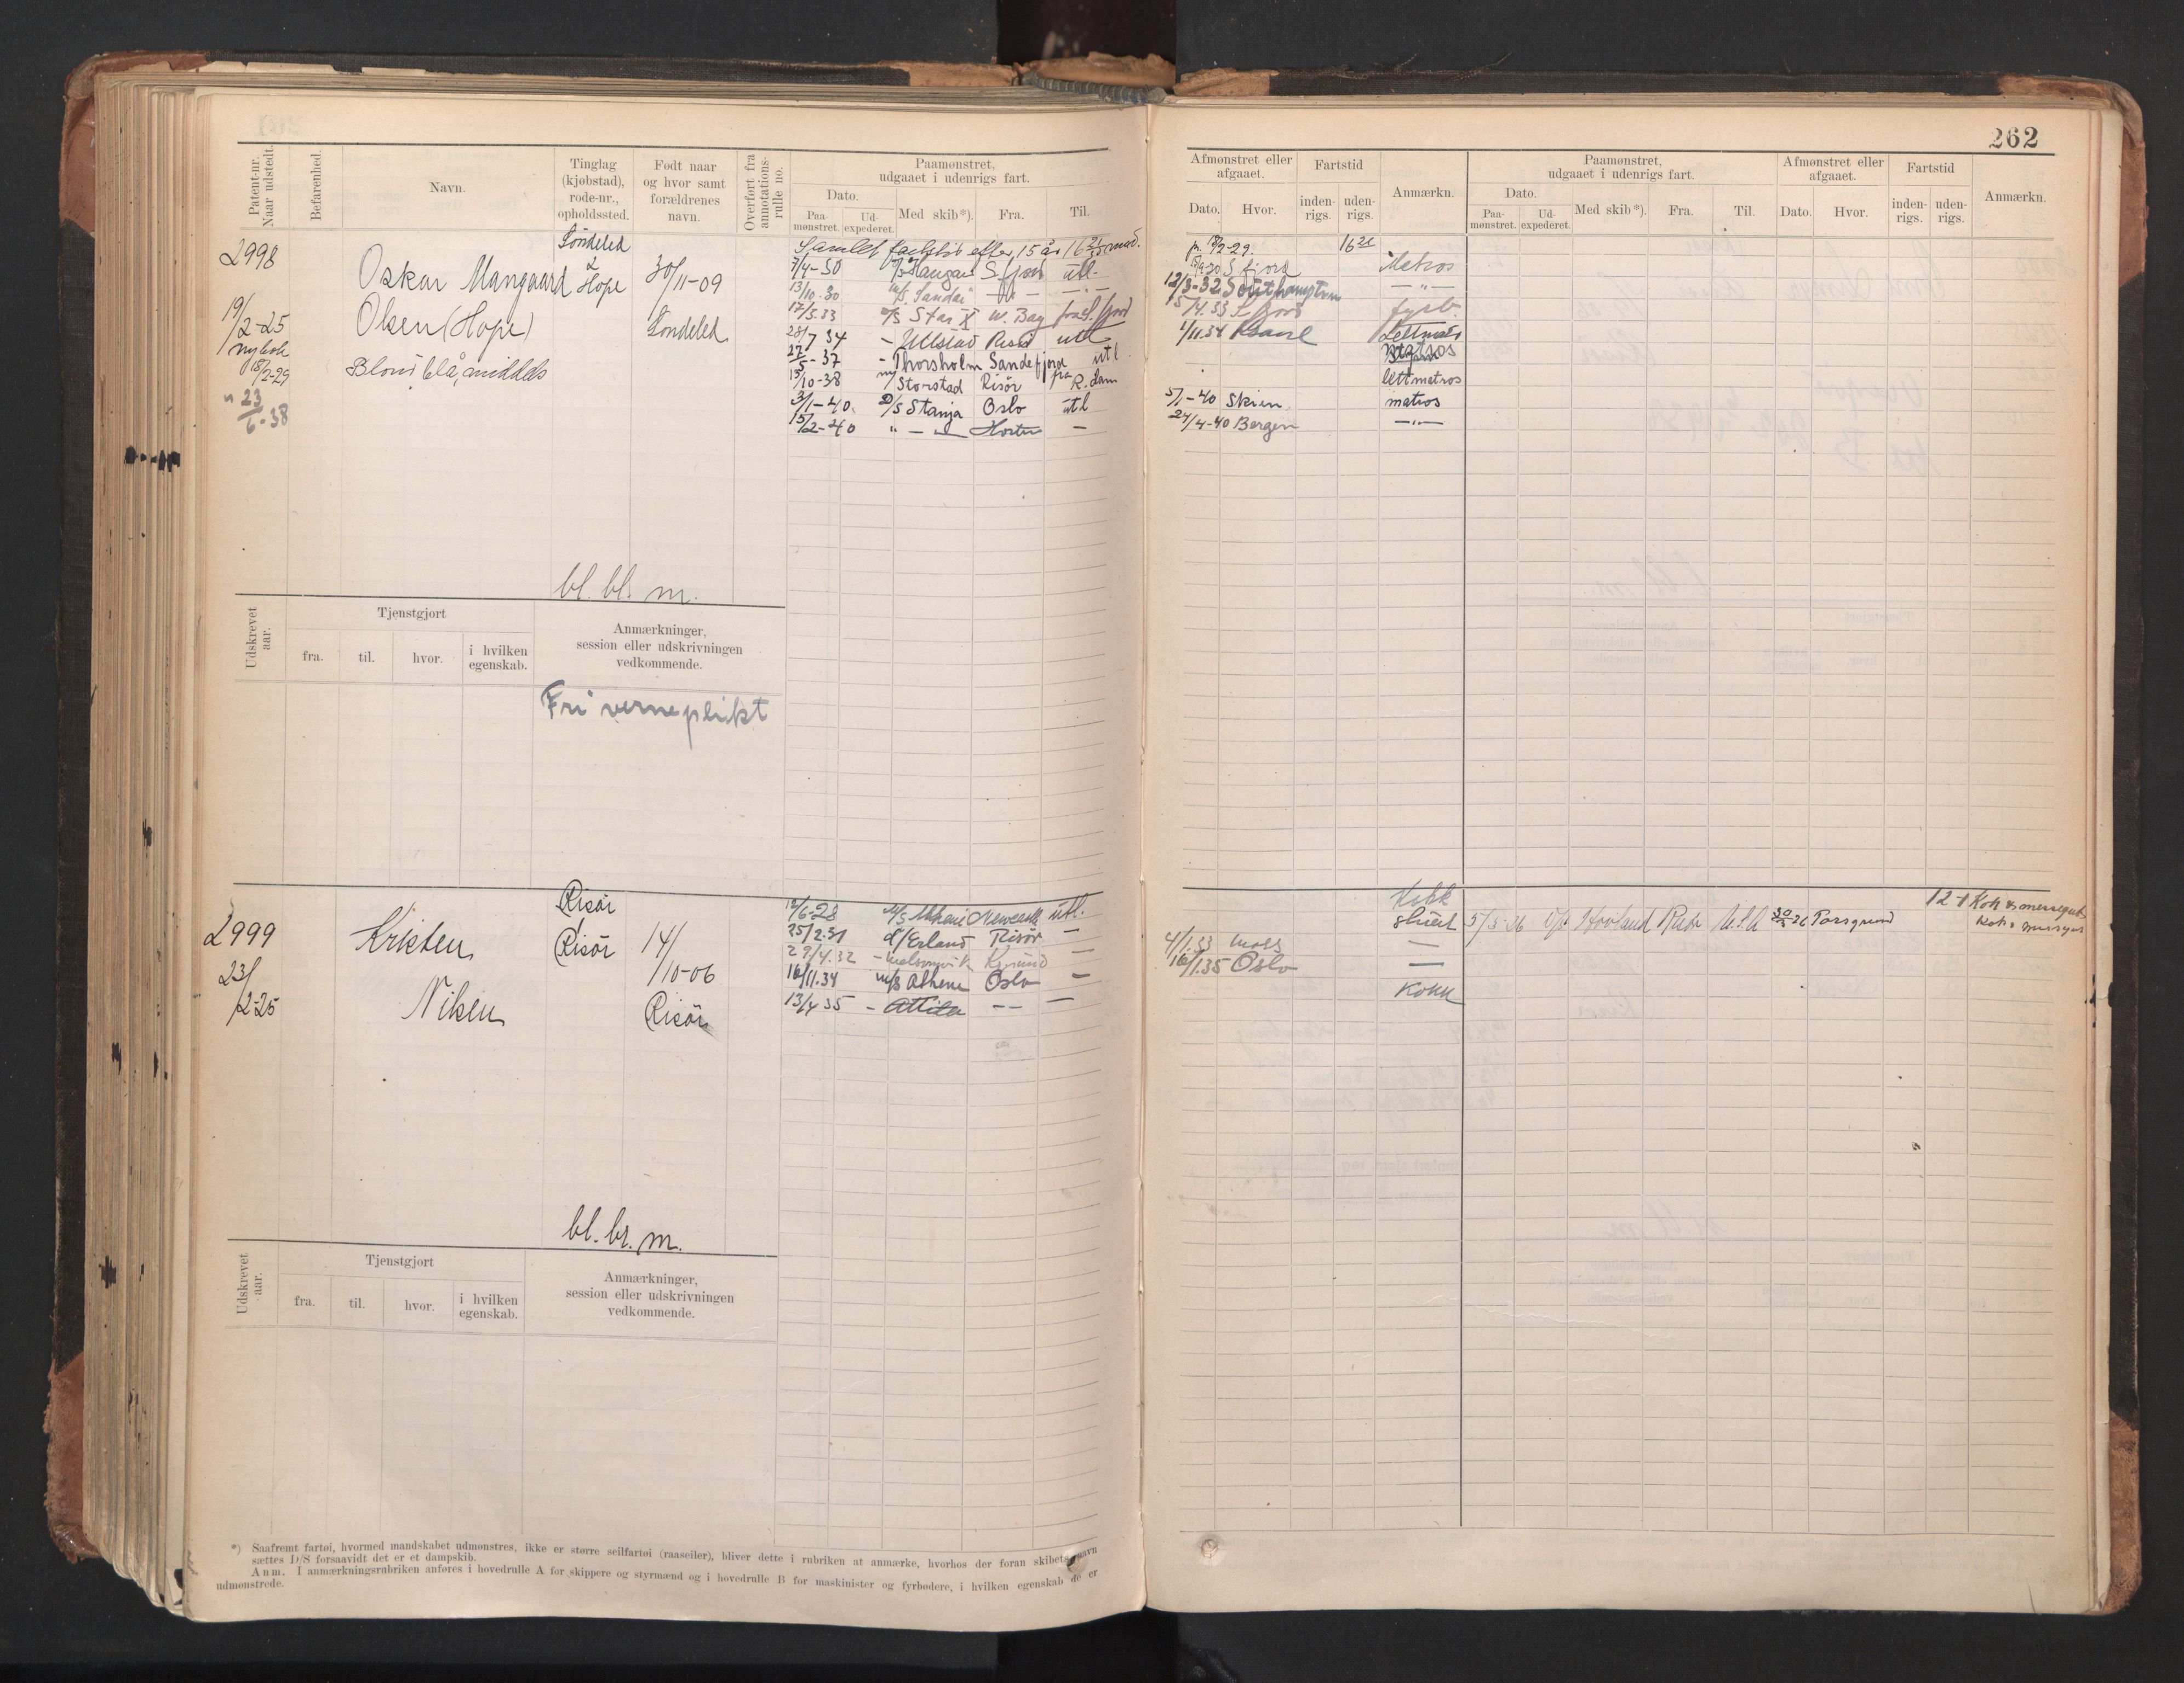 262
Patent-nr. Naar udstedt.
Befarenhed.
Navn.
Tinglag (kjøbstad), rode-nr., opholdssted.
Født naar og hvor samt forældrenes navn.
Overført fra annotations-rulle no.
Paamønstret, udgaaet i udenrigs fart.
Dato.
Paa-mønstret.
Ud-expederet.
Med skib*).
Fra.
Til.
Afmønstret eller afgaaet.
Dato.
Hvor.
Fartstid
inden-rigs.
uden-rigs.
Anmærkn.
Paamønstret, udgaaet i udenrigs fart.
Dato.
Paa-mønstret.
Ud-expederet.
Med skib*).
Fra.
Til.
Afmønstret eller afgaaet.
Dato.
Hvor.
Fartstid
inden-rigs.
uden-rigs.
Anmærkn.
2998
19/2-25
ny bok
18/2-29
" 23/6-38
Oskar Mangaard
Olsen (Hope)
Blond blå, middels
Söndeled
2
Hope
30/11-09
Söndeled
Samlet fartstid efter 15 år
p. 18/2-29. 16
7/4-30 S.fjord utl.
S.fjord Matros
13/10-30 M/S. Sandai — " — — " —
12/3-32 Southampton — " —
17/5.33 M/S Star X W. Bay
5/4.33 S.fjord fyrb.
28/7 34 - Ullstad Risør utl
1/11.34 Lettmatros
27/5-37 - Thorsholm Sandefjord utl
Matros
13/10-38 M/ Storstad Risör fra R.dam
lettmatros
3/1-40. D/S Stanja Oslo utl
5/1-40 Skien matros
15/2-40 " — " — Horten —
24/4-40 Bergen — " —
bl. bl. m.
Udskrevet aar.
Tjenstgjort
fra.
til.
hvor.
i hvilken egenskab.
Anmærkninger, session eller udskrivningen vedkommende.
Fri verneplikt
2999
23/2-25
Kristen
Nilsen
Risör
Risör
14/10-06
Risör
12/6-28 M/S Athene Newcastle utl.
Kokk
25/2.31 d/ Erland Risör —
Stuert
29/4.32 -
4/1.33 Moss —
16/11.34 m/s Athene Oslo —
16/1.35 Oslo —
13/4 35 - Attila — — —
Kokk
5/5-36 D/S Hovland U.S.A Porsgrund
12-1
bl. br. m.
Udskrevet aar.
Tjenstgjort
fra.
til.
hvor.
i hvilken egenskab.
Anmærkninger, session eller udskrivningen vedkommende.
*) Saafremt fartøi, hvormed mandskabet udmønstres, ikke er større seilfartøi (raaseiler), bliver dette i rubriken at anmærke, hvorhos der foran skibets navn
sættes D/S forsaavidt det er et dampskib.
Anm. I anmærkningsrubriken anføres i hovedrulle A for skippere og styrmænd og i hovedrulle B for maskinister og fyrbødere, i hvilken egenskab de er
udmønstrede.